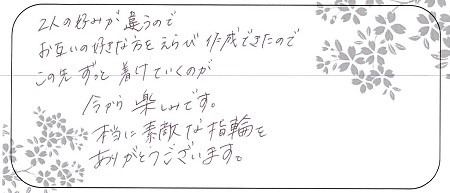 2人の好みが違うので
お互いの好きな方をえらび作成できたので
この先ずっと着けていくのが
今から楽しみです。
本当に素敵な指輪を
ありがとうございます。